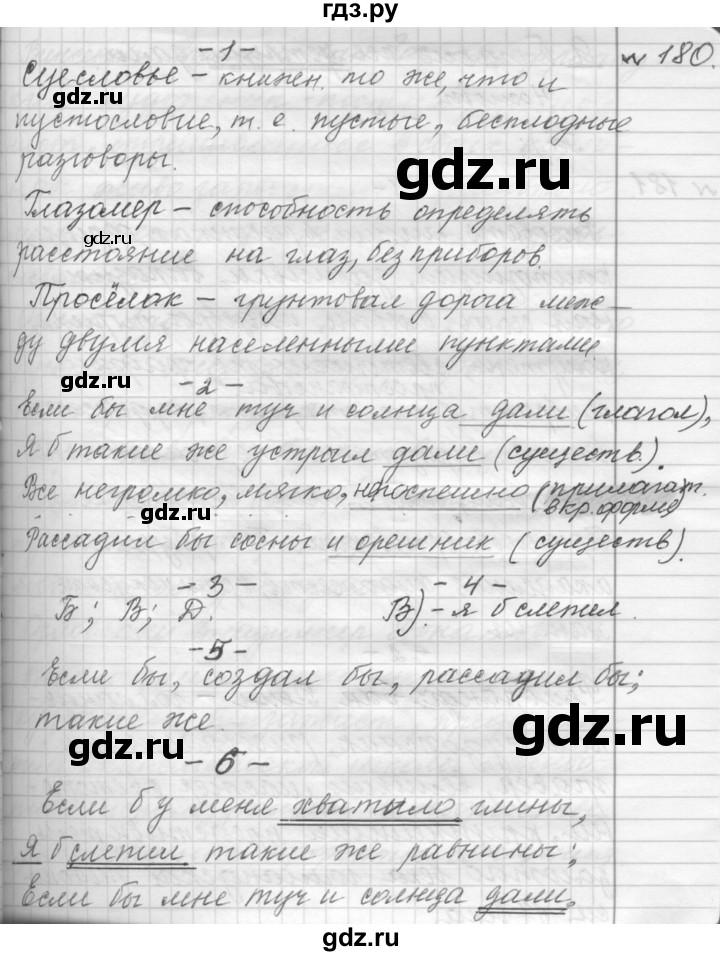 гдз.ру
- 1 -
№ 180.
Суесловье – книжен. то же, что и
gdz.ru
пустословие, т. е. пустые, бесплодные
разговоры.
gdz.ru
Глазомер – способность определять
gdz.ru
расстояние на глаз, без приборов.
Просёлак – грунтовая дорога меж–
ду двумя населенными пунктами
gdz.ru
- 2 -
Если бы мне туч и солнца дали (глагол),
Я б такие же устроил дали (существ.).
Все негромко, мягко, непоспешно (прилагат.
в кр. форме)
gdz.ru
Рассадил бы сосны и орешник (существ).
- 3 -
- 4 -
Б; В; Д.
В) – я б слепил.
- 5 -
Если бы, создал бы, рассадил бы;
такие же.
gdz.ru
gdz.ru
- 6 -
Если б у меня хватыло глины,
Я б слепил такие же равнины;
Если бы мне туч и солнца дали,
gdz.ru